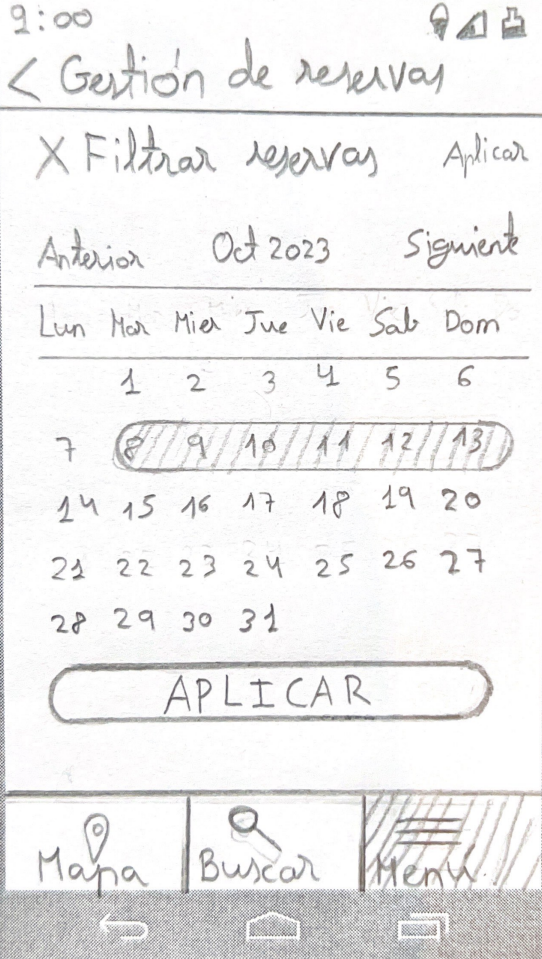 9:00
< Gestión de reservas
X Filtrar reservas Aplicar
Anterior Oct 2023 Siguiente
Lun Mar Mier Jue Vie Sab Dom
1 2 3 4 5 6
7 8 9 10 11 12 13
14 15 16 17 18 19 20
21 22 23 24 25 26 27
28 29 30 31
APLICAR
Mapa Buscar Menú